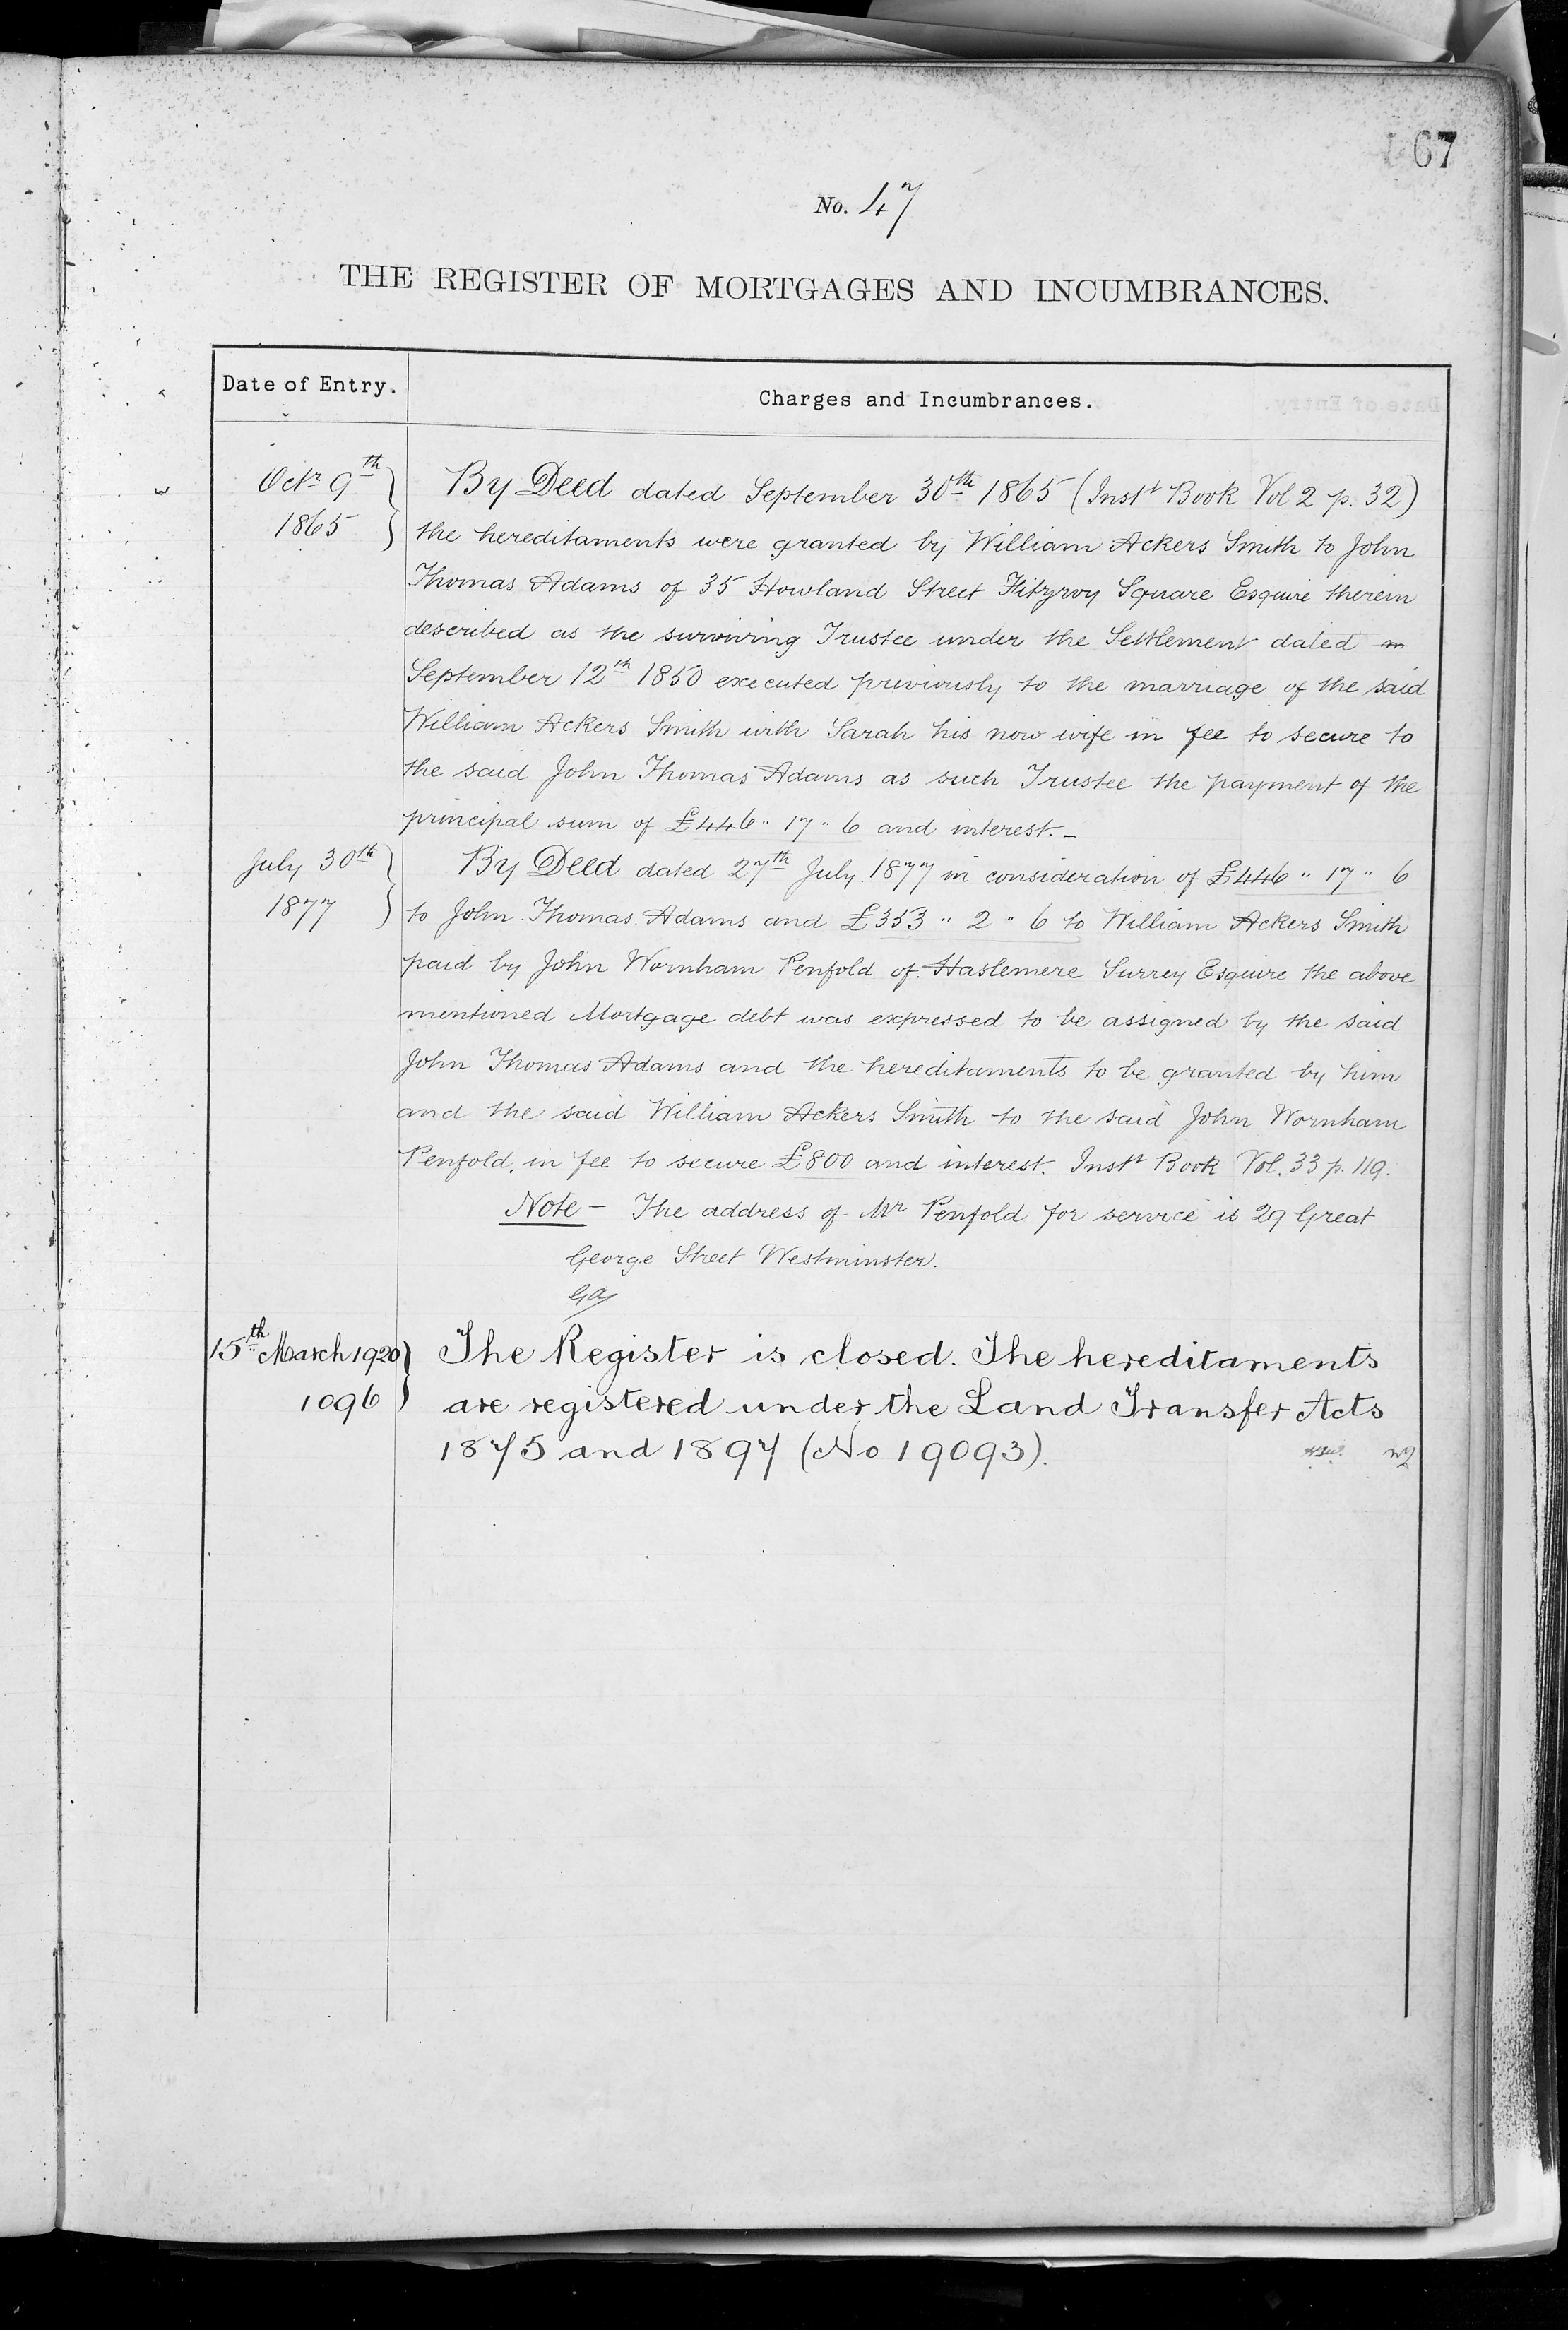 67
No. 47
THE REGISTER OF MORTGAGES AND INCUMBRANCES.
Date of Entry.
Charges and Incumbrances.
Octr 9th
1865
By Deed dated September 30th 1865 (Instt Book Vol 2 p. 32)
the hereditaments were granted by William Ackers Smith to John
Thomas Adams of 35 Howland Street Fitzroy Square Esquire therein
described as the surviving Trustee under the Settlement dated
September 12th 1850 executed previously to the marriage of the said
William Ackers Smith with Sarah his now wife in fee to secure to
the said John Thomas Adams as such Trustee the payment of the
principal sum of £446 " 17 " 6 and interest. –
July 30th
1877
By Deed dated 27th July 1877 in consideration of £446 " 17 " 6
to John Thomas Adams and £353 " 2 " 6 to William Ackers Smith
paid by John Wornham Penfold of Haslemere Surrey Esquire the above
mentioned Mortgage debt was expressed to be assigned by the said
John Thomas Adams and the hereditaments to be granted by him
and the said William Ackers Smith to the said John Wornham
Penfold, in fee to secure £800 and interest. Instt Book Vol. 33 p. 119.
Note – The address of Mr Penfold for service is 29 Great
George Street Westminster.
15th March 1920
1096
The Register is closed. The hereditaments
are registered under the Land Transfer Acts
1875 and 1897 (No 19093).